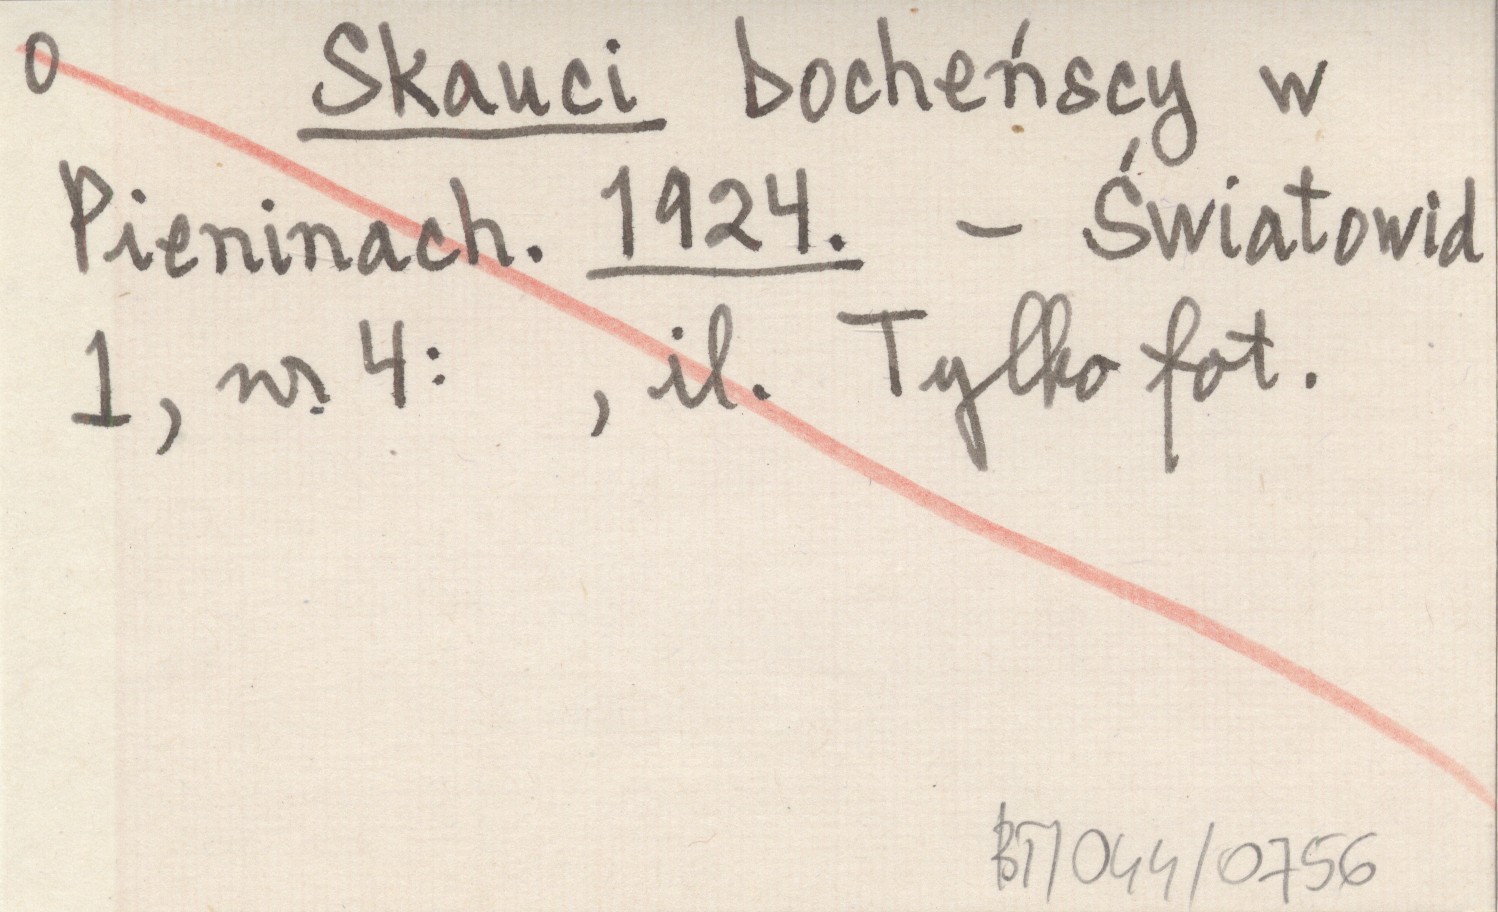 0 Skauci bocheńscy w
Pieninach. 1924. – Światowid
1, nr 4: , il. Tylko fot.
BT/044/0756